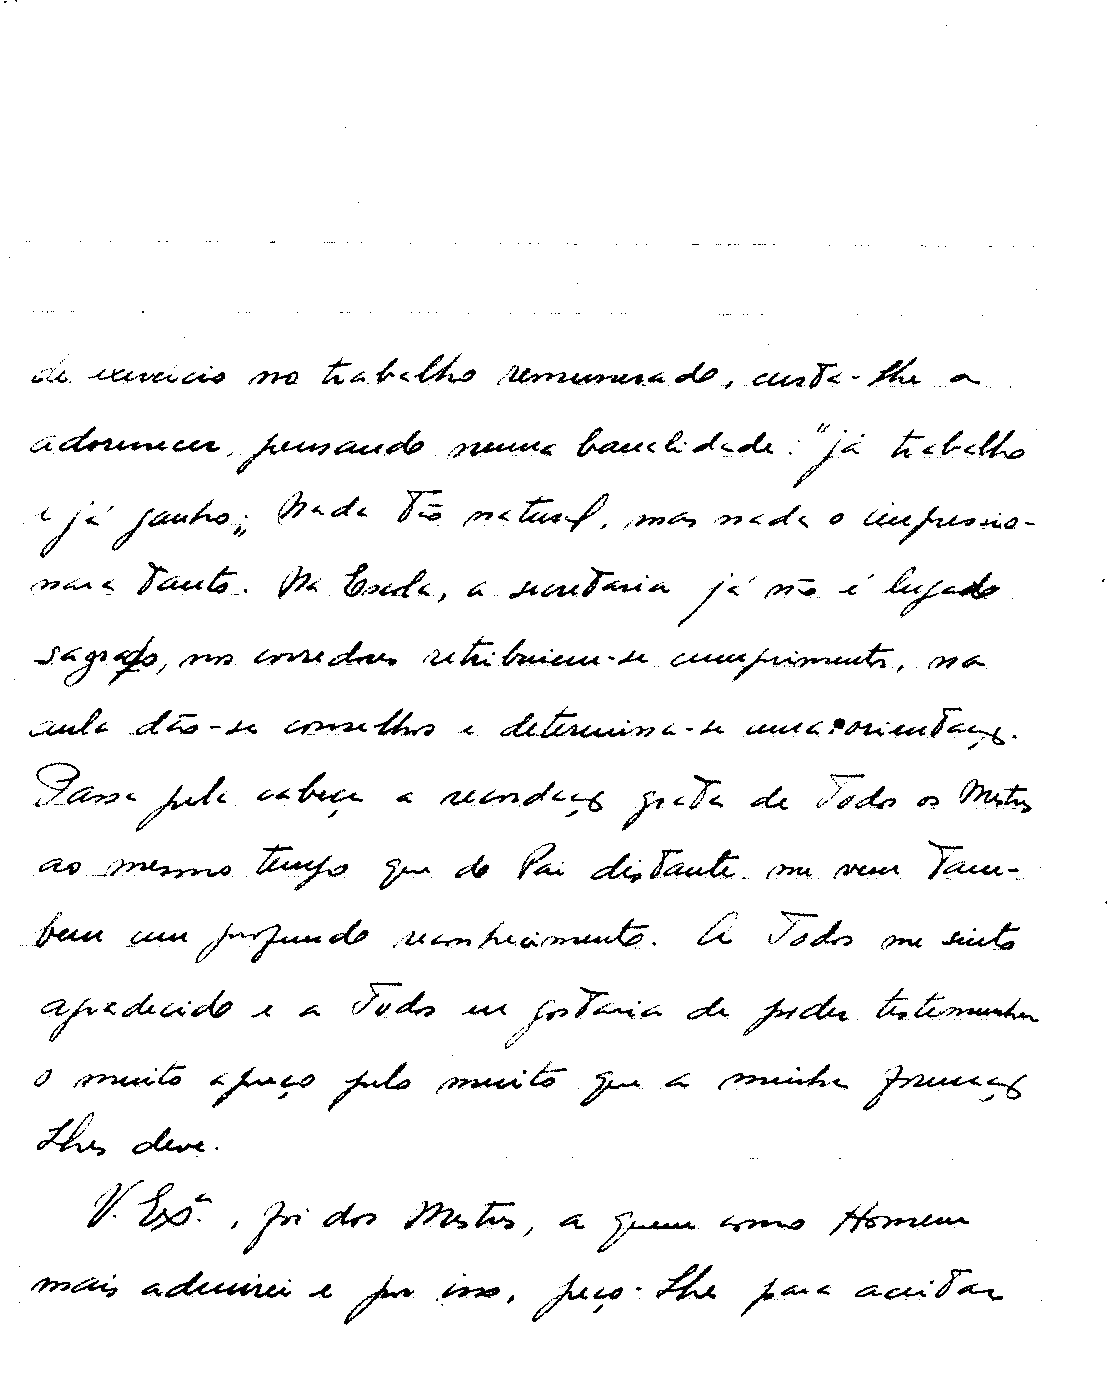 de exercício no trabalho remunerado, custa-lhe a
adormecer, pensando numa banalidade: "já trabalho
e já ganho;" Nada tão natural, mas nada o impressio-
nara tanto. Na Escola, a secretaria já não é lugar do
sagrado, nos corredores retribuiem-se cumprimentos, na
aula dão-se conselhos e determina-se uma orientação.
Passa pela cabeça a recordação grata de todos os Mestres
ao mesmo tempo que do Pai distante me vem tam-
bem um profundo reconhecimento. A Todos me sinto
agradecido e a Todos eu gostaria de poder testemunhar
o muito apreço pelo muito que a minha formação
lhes deve.
V. Exª., foi dos Mestres, a quem como Homem
mais admirei e por isso, peço-lhe para aceitar